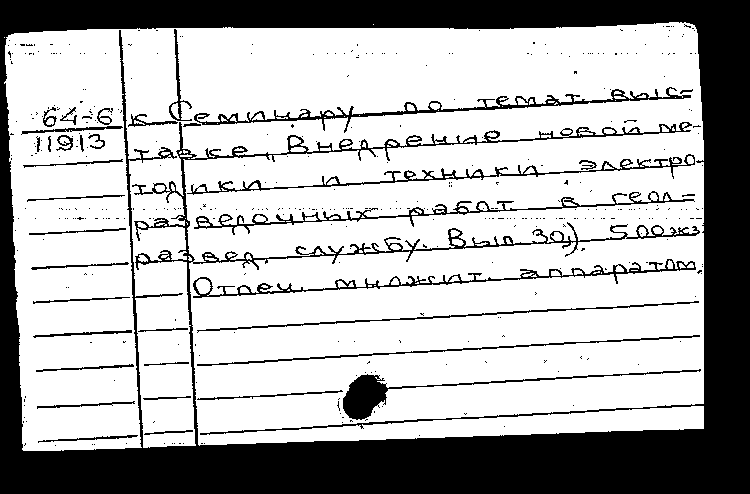 64-6 к Семинару по темат. выс=
11913 тавке „Внедрение новой ме-
тодики и техники электро-
разведочных работ в геол=
развед. службу. Вып 30,) 500 экз
Отпеч. множит. аппаратом.